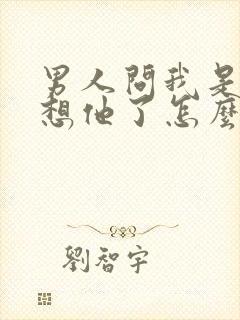 男人問我是
想他了怎麼
劉智宇